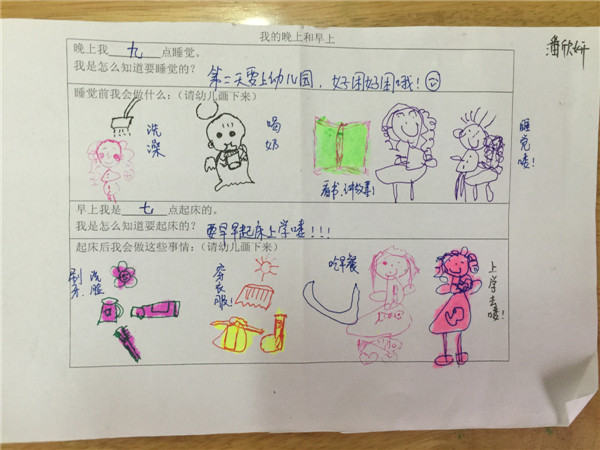 我的晚上和早上
潘欣妍
晚上我 九 点睡觉。
我是怎么知道要睡觉的? 第二天要上幼儿园,好困好困哦!
睡觉前我会做什么:(请幼儿画下来)
洗澡
喝奶
看书,讲故事!
睡觉喽!
早上我是 七 点起床的。
我是怎么知道要起床的? 要早早起床上学喽!!!
起床后我会做这些事情:(请幼儿画下来)
刷牙 洗脸
穿衣服!
吃早餐
上学去喽!